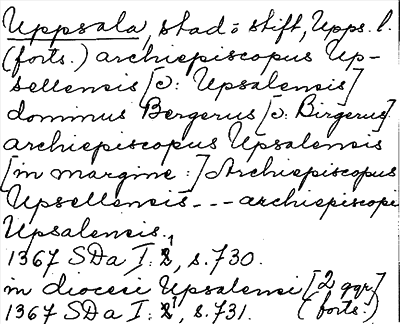 Uppsala, stad o stift, Upps. l.
(forts.) archiepiscopus Up-
sellensis [ɔ: Upsalensis]
dominus Bergerus [ɔ: Birgerus]
archiepiscopus Upsalensis
[in margine:] Archiepiscopus
Upsellensis - - - archiepiscopi
Upsalensis.
1367 SDa I: 1, s. 730.
in diocesi Upsalensi [2 ggr.]
1367 SDa I: 1, s. 731. (forts.)